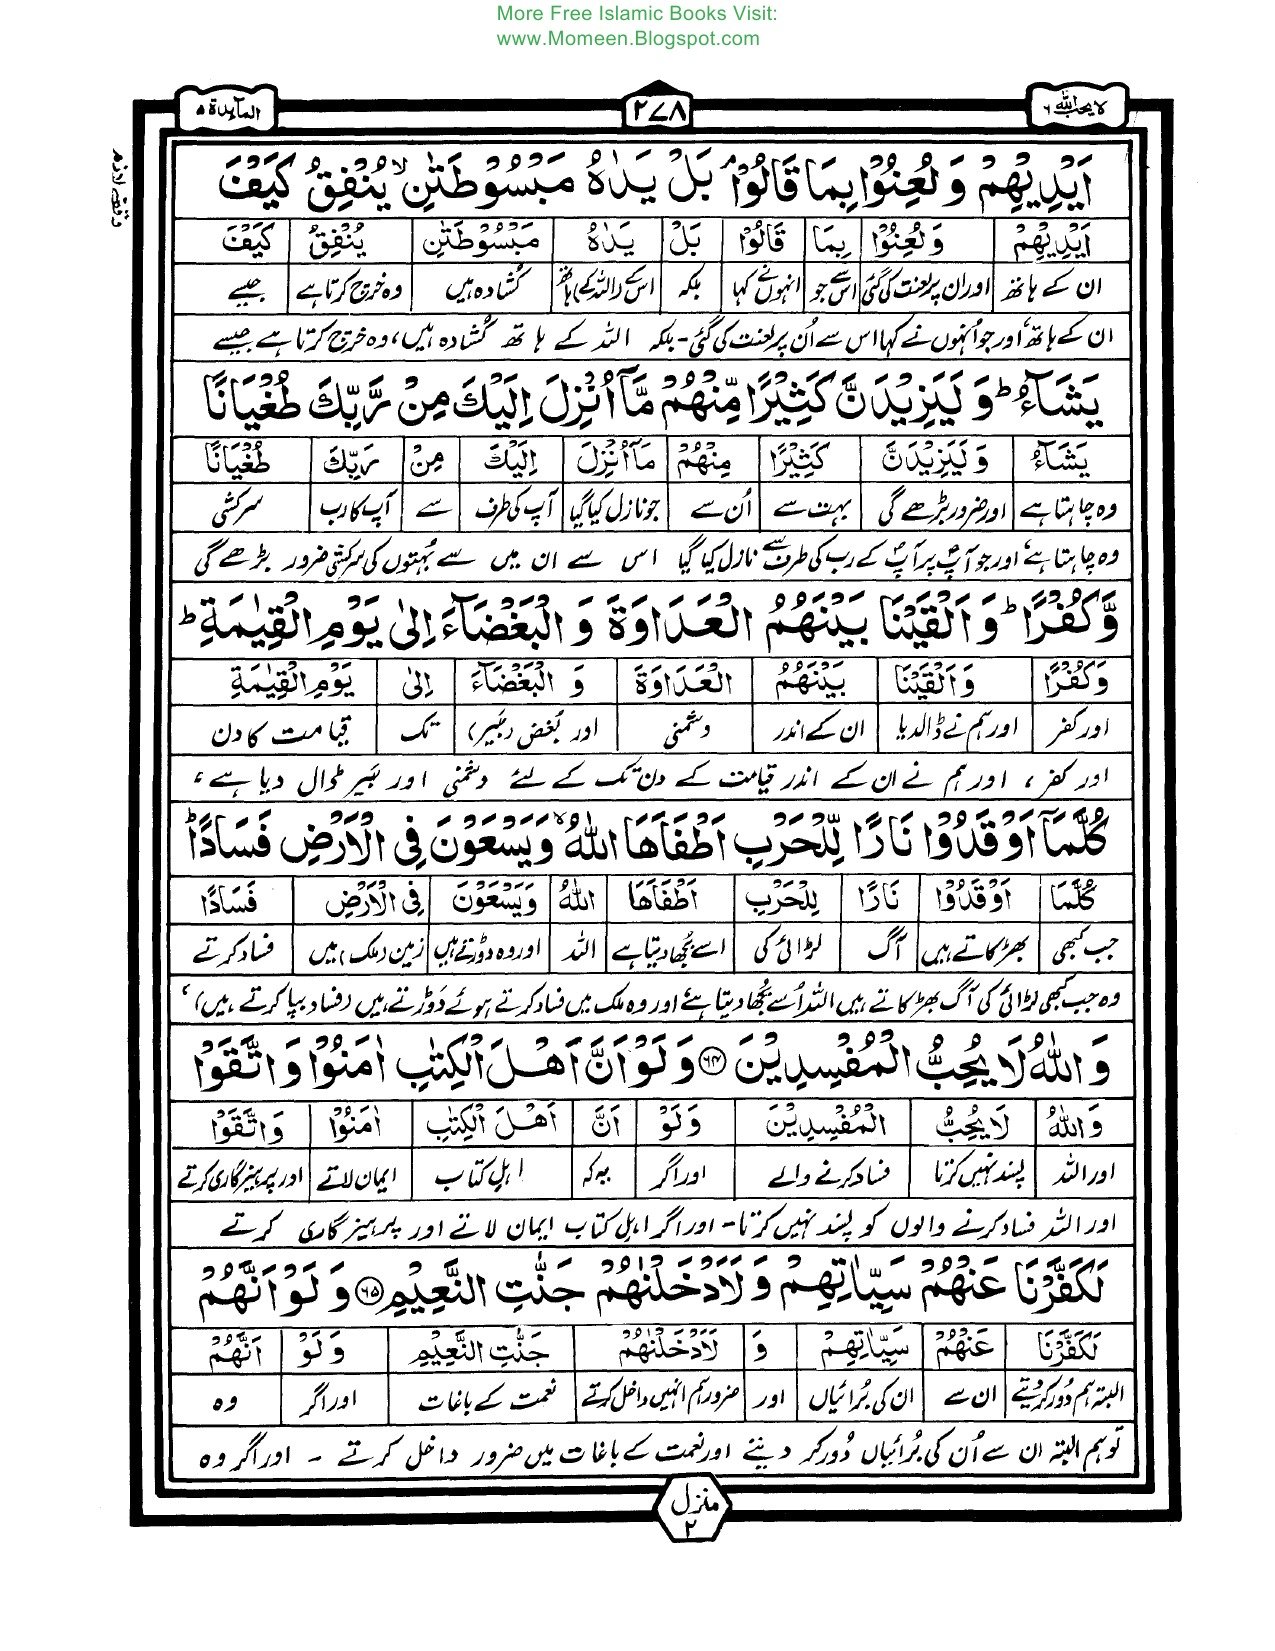 More Free Islamic Books Visit:
www.Momeen.Blogspot.com
لا یحب اللہ ۶ ۲۷۸ المآئدۃ ۵
وقف لازم
اَيْدِيْهِمْ وَلُعِنُوْا بِمَا قَالُوْا ۘ بَلْ يَدٰهُ مَبْسُوْطَتٰنِ ۙ يُنْفِقُ كَيْفَ
اَيْدِيْهِمْ وَلُعِنُوْا بِمَا قَالُوْا بَلْ يَدٰهُ مَبْسُوْطَتٰنِ يُنْفِقُ كَيْفَ
ان کے ہاتھ اور ان پر لعنت کی گئی اس سے جو انہوں نے کہا بلکہ اس کے (اللہ کے) ہاتھ کشادہ ہیں وہ خرچ کرتا ہے جیسے
ان کے ہاتھ، اور جو اُنہوں نے کہا اس سے اُن پر لعنت کی گئی - بلکہ اللہ کے ہاتھ کُشادہ ہیں، وہ خرچ کرتا ہے جیسے
يَشَآءُ ؕ وَلَيَزِيْدَنَّ كَثِيْرًا مِّنْهُمْ مَّاۤ اُنْزِلَ اِلَيْكَ مِنْ رَّبِّكَ طُغْيَانًا
يَشَآءُ وَلَيَزِيْدَنَّ كَثِيْرًا مِنْهُمْ مَاۤ اُنْزِلَ اِلَيْكَ مِنْ رَبِّكَ طُغْيَانًا
وہ چاہتا ہے اور ضرور بڑھے گی بہت سے اُن سے جو نازل کیا گیا آپ کی طرف سے آپ کا رب سرکشی
وہ چاہتا ہے، اور جو آپؐ پر آپؐ کے رب کی طرف سے نازل کیا گیا اس سے ان میں سے بُہتوں کی سرکشی ضرور بڑھے گی
وَّكُفْرًا ؕ وَاَلْقَيْنَا بَيْنَهُمُ الْعَدَاوَةَ وَ الْبَغْضَآءَ اِلٰى يَوْمِ الْقِيٰمَةِ ؕ
وَكُفْرًا وَاَلْقَيْنَا بَيْنَهُمُ الْعَدَاوَةَ وَ الْبَغْضَآءَ اِلٰى يَوْمِ الْقِيٰمَةِ
اور کفر اور ہم نے ڈالدیا ان کے اندر دشمنی اور بُغض (بَیر) تک قیامت کا دن
اور کفر، اور ہم نے ان کے اندر قیامت کے دن تک کے لئے دشمنی اور بَیر ڈال دیا ہے،
كُلَّمَاۤ اَوْقَدُوْا نَارًا لِّلْحَرْبِ اَطْفَاَهَا اللّٰهُ ۙ وَيَسْعَوْنَ فِى الْاَرْضِ فَسَادًا ؕ
كُلَّمَا اَوْقَدُوْا نَارًا لِلْحَرْبِ اَطْفَاَهَا اللّٰهُ وَيَسْعَوْنَ فِى الْاَرْضِ فَسَادًا
جب کبھی بھڑکاتے ہیں آگ لڑائی کی اسے بُجھا دیتا ہے اللہ اور وہ دوڑتے ہیں زمین (ملک) میں فساد کرتے
وہ جب کبھی لڑائی کی آگ بھڑکاتے ہیں اللہ اُسے بُجھا دیتا ہے اور وہ ملک میں فساد کرتے ہوئے دَوڑتے ہیں (فساد بپا کرتے ہیں)،
وَاللّٰهُ لَا يُحِبُّ الْمُفْسِدِيْنَ ۝۶۴ وَلَوْ اَنَّ اَهْلَ الْكِتٰبِ اٰمَنُوْا وَاتَّقَوْا
وَاللّٰهُ لَا يُحِبُّ الْمُفْسِدِيْنَ وَلَوْ اَنَّ اَهْلَ الْكِتٰبِ اٰمَنُوْا وَاتَّقَوْا
اور اللہ پسند نہیں کرتا فساد کرنے والے اور اگر یہ کہ اہلِ کتاب ایمان لاتے اور پرہیزگاری کرتے
اور اللہ فساد کرنے والوں کو پسند نہیں کرتا - اور اگر اہلِ کتاب ایمان لاتے اور پرہیزگاری کرتے
لَكَفَّرْنَا عَنْهُمْ سَيِّاٰتِهِمْ وَلَاَدْخَلْنٰهُمْ جَنّٰتِ النَّعِيْمِ ۝۶۵ وَلَوْ اَنَّهُمْ
لَكَفَّرْنَا عَنْهُمْ سَيِّاٰتِهِمْ وَ لَاَدْخَلْنٰهُمْ جَنّٰتِ النَّعِيْمِ وَلَوْ اَنَّهُمْ
البتہ ہم دُور کر دیتے ان سے ان کی بُرائیاں اور ضرور ہم انہیں داخل کرتے نعمت کے باغات اور اگر وہ
تو ہم البتہ ان سے اُن کی بُرائیاں دُور کر دیتے اور نعمت کے باغات میں ضرور داخل کرتے - اور اگر وہ
منزل
۲